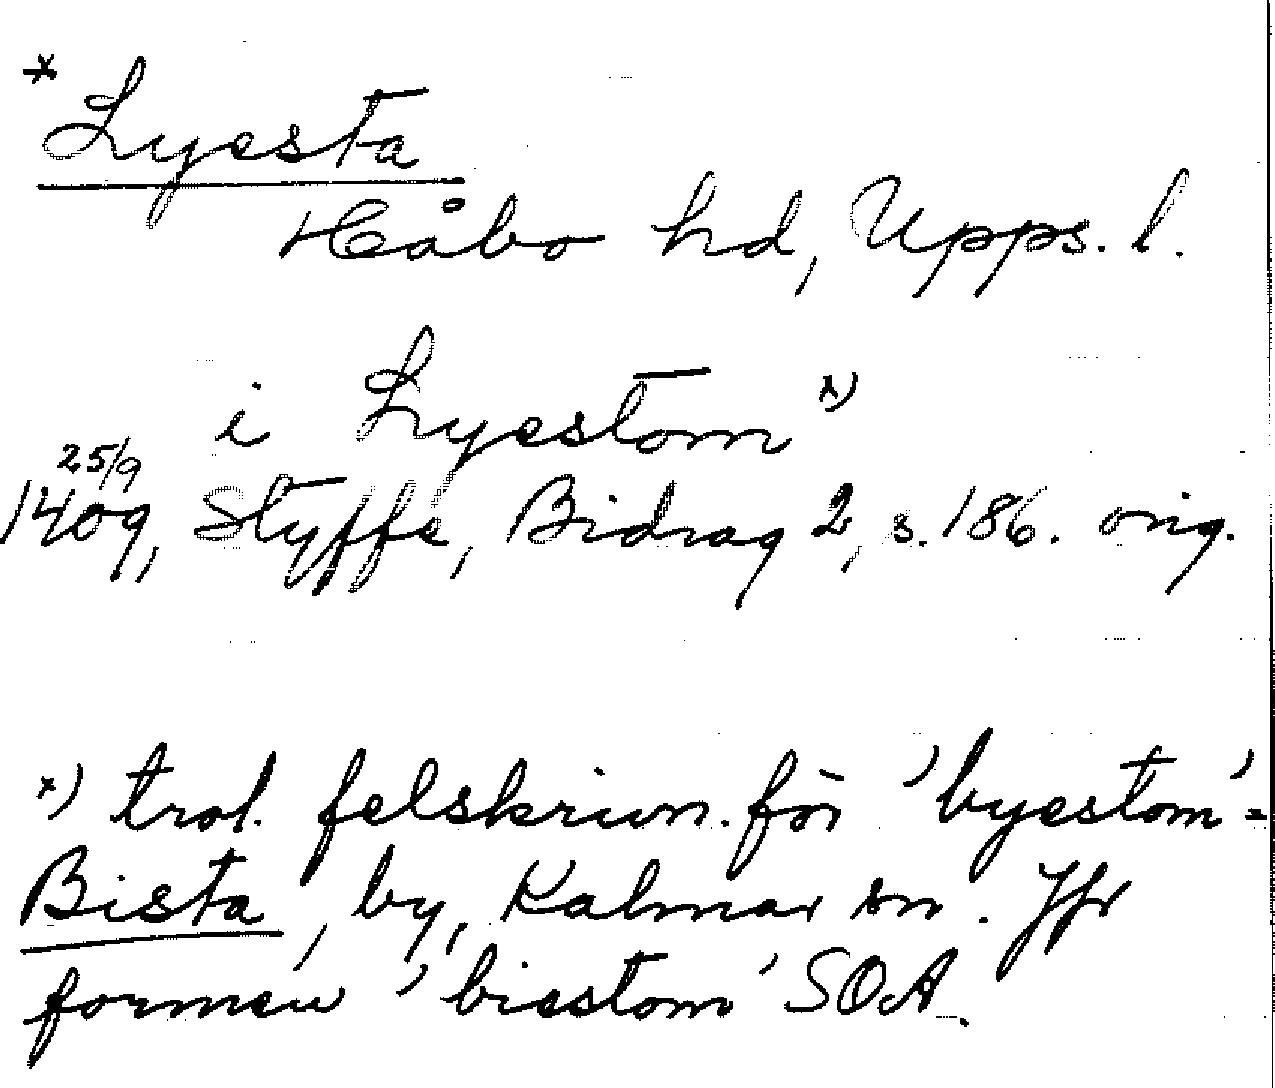 * Lyesta
Håbo hd, Upps. l.
i Lyestom x)
25/9
1409, Styffe, Bidrag 2, s. 186. orig.
x) trol. felskrivn. för 'byestom' =
Bista, by, Kalmar sn. Jfr
formen 'biestom' SOA.